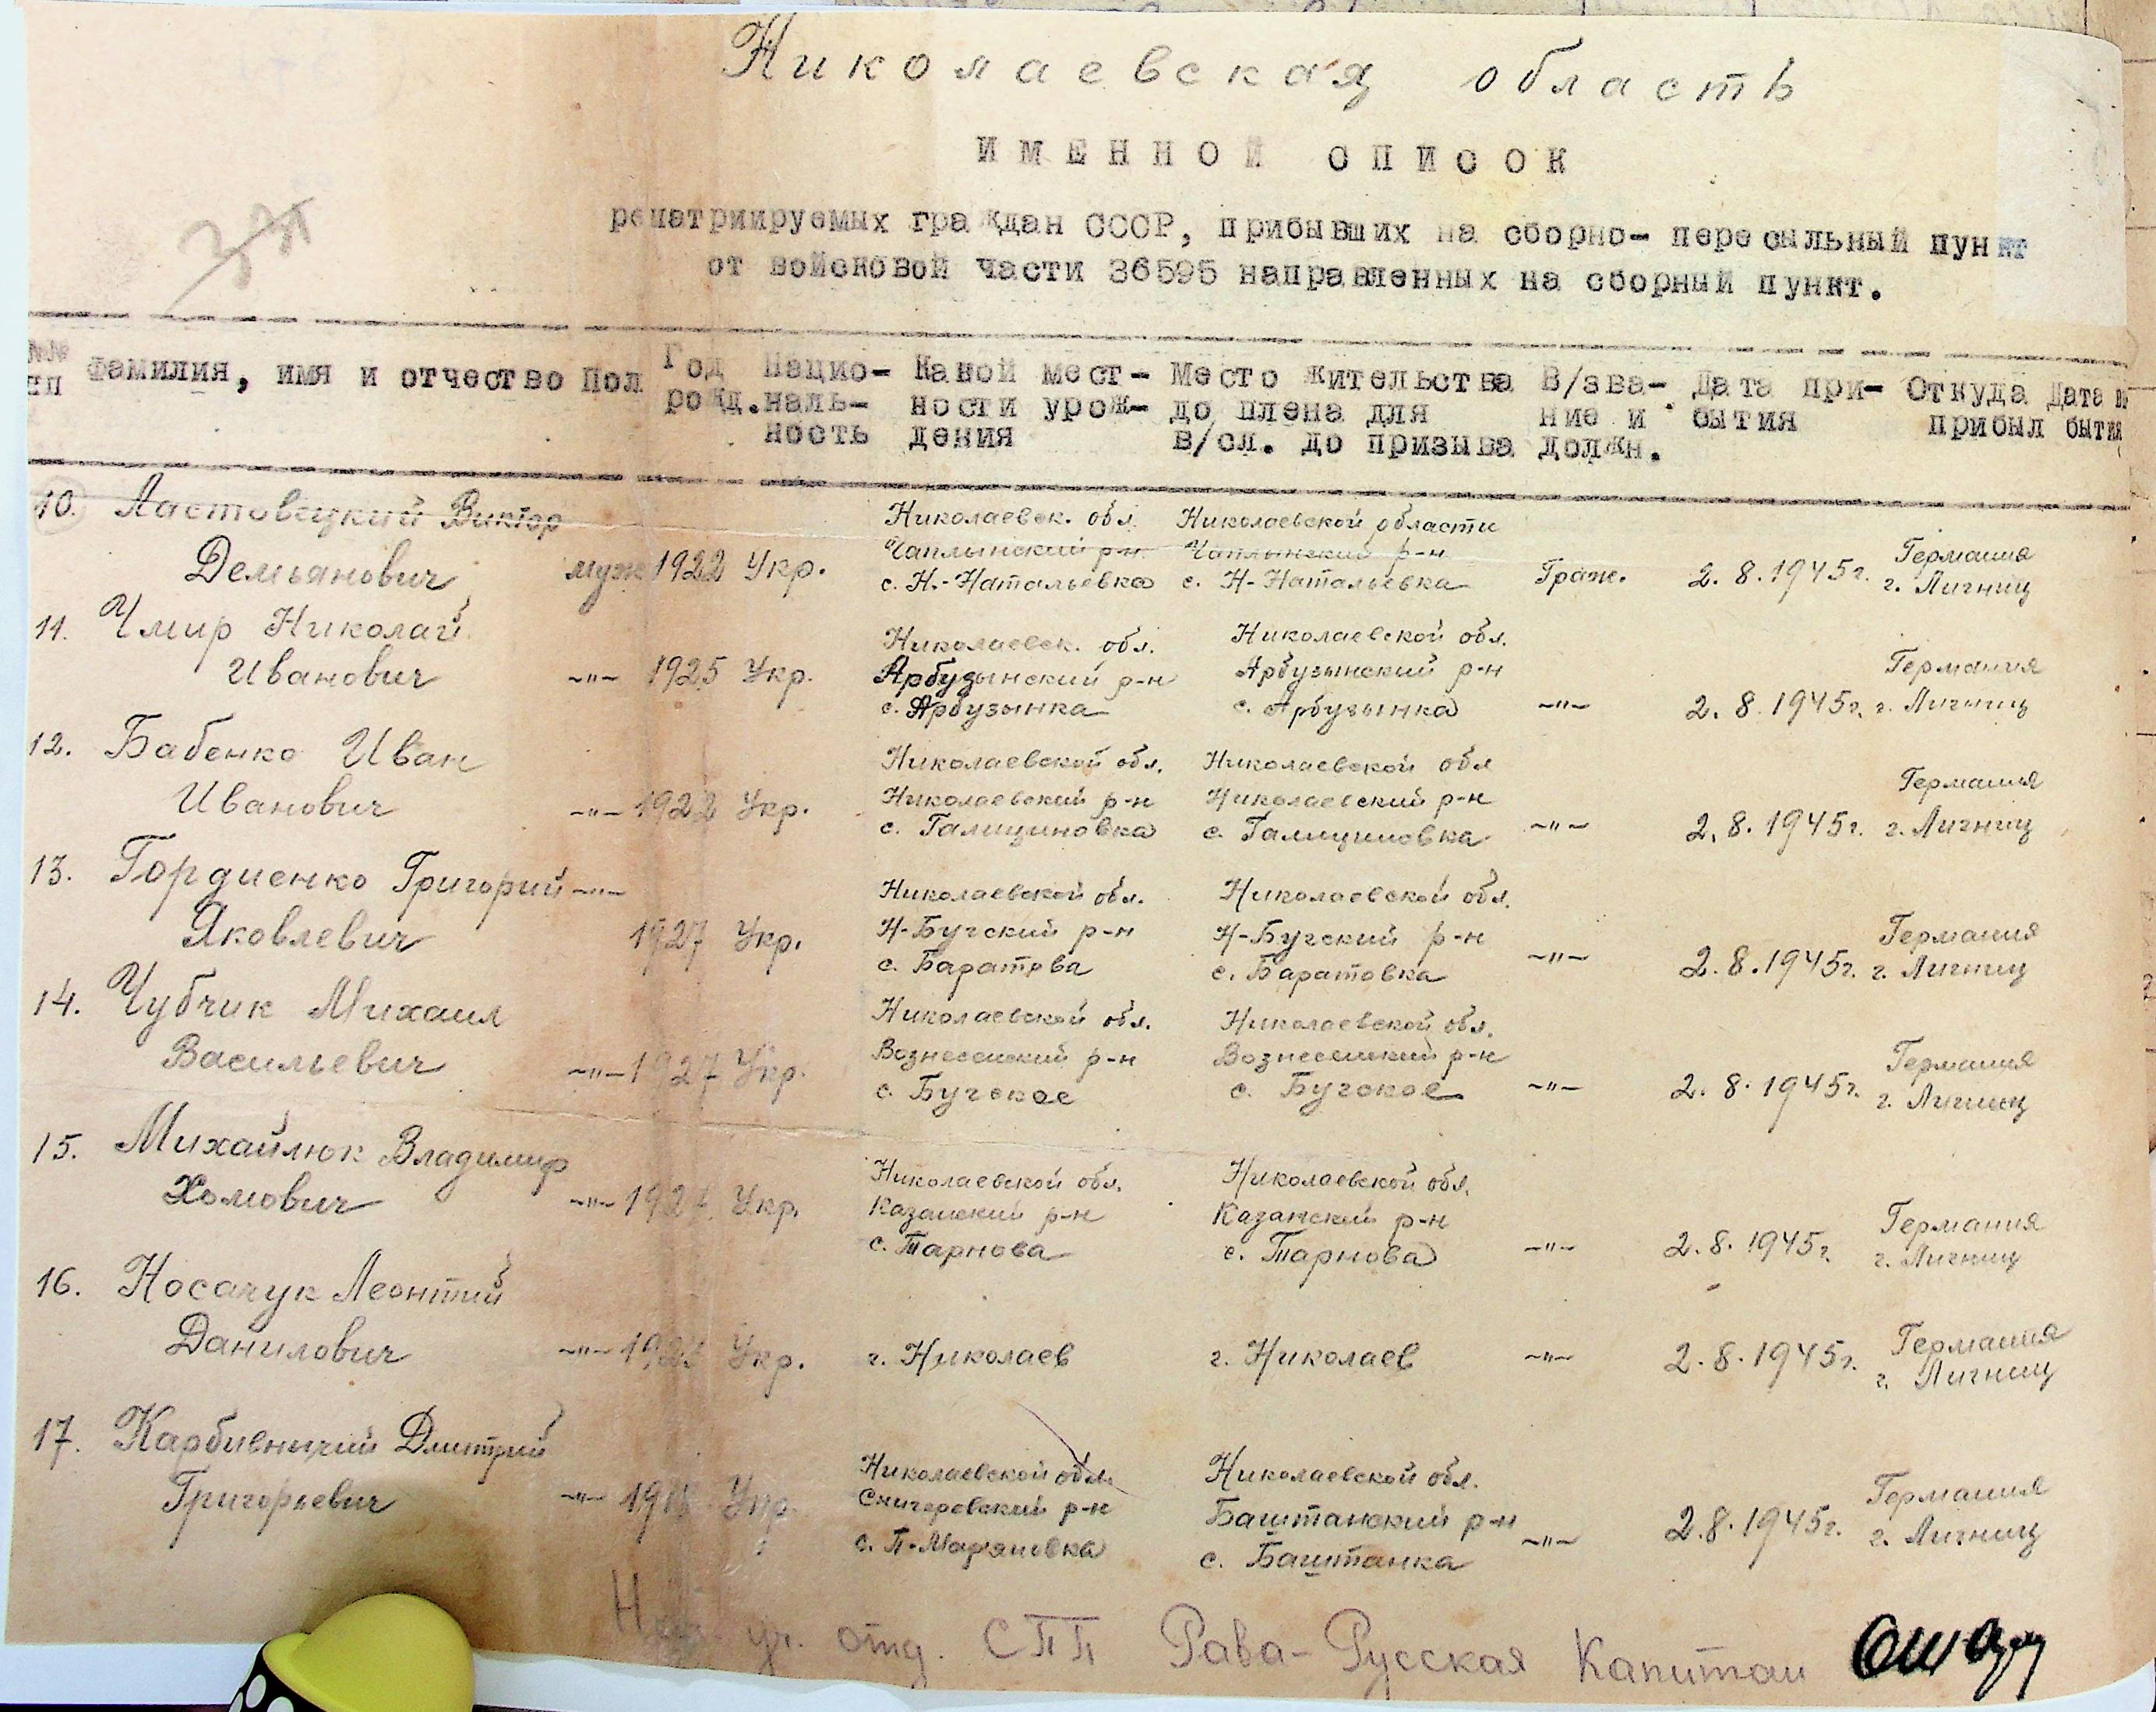 Николаевская область
ИМЕННОЙ СПИСОК
репатриируемых граждан СССР, прибывших на сборно- пересыльный пункт
от войсковой части 36595 направленных на сборный пункт.
№№ пп Фамилия, имя и отчество Пол Год рожд. Нацио- наль- ность Какой мест- ности урож- дения Место жительства до плена для в/сл. до призыва В/зва- ние и должн. Дата при- бытия Откуда прибыл Дата
10. Ластовецкий Виктор Николаевск. обл. Николаевской области
Чаплынский р-н Чаплынский р-н Германия
Демьянович муж 1922 Укр. с. Н.-Натальевка с. Н-Натальевка Граж. 2.8.1945г. г. Лигниц
11. Чмир Николай Николаевск. обл. Николаевской обл.
Иванович -"- 1925 Укр. Арбузынский р-н Арбузынский р-н Германия
с. Арбузынка с. Арбузынка -"- 2.8.1945г. г. Лигниц
12. Бабенко Иван Николаевской обл. Николаевской обл
Иванович -"- 1922 Укр. Николаевский р-н Николаевский р-н Германия
с. Галициновка с. Галициновка -"- 2.8.1945г. г. Лигниц
13. Гордиенко Григорий -"- Николаевской обл. Николаевской обл.
Яковлевич 1927 Укр. Н-Бугский р-н Н-Бугский р-н Германия
с. Баратова с. Баратовка -"- 2.8.1945г. г. Лигниц
14. Чубчик Михаил Николаевской обл. Николаевской обл.
Васильевич -"- 1927 Укр. Вознесенский р-н Вознесенский р-н Германия
с. Бугское с. Бугское -"- 2.8.1945г. г. Лигниц
15. Михайлюк Владимир Николаевской обл. Николаевской обл.
Хомович -"- Укр. Казанский р-н Казанский р-н Германия
с. Тарнова с. Тарнова -"- 2.8.1945г. г. Лигниц
16. Носачук Леонтий
Данилович -"- Укр. г. Николаев г. Николаев -"- 2.8.1945г. Германия
г. Лигниц
17. Карбивничий Дмитрий Николаевской обл. Николаевской обл.
Григорьевич -"- Укр. Снигеровский р-н Баштанский р-н Германия
с. П-Марьяновка с. Баштанка -"- 2.8.1945г. г. Лигниц
Нач. уч. отд. СПП Рава-Русская Капитан